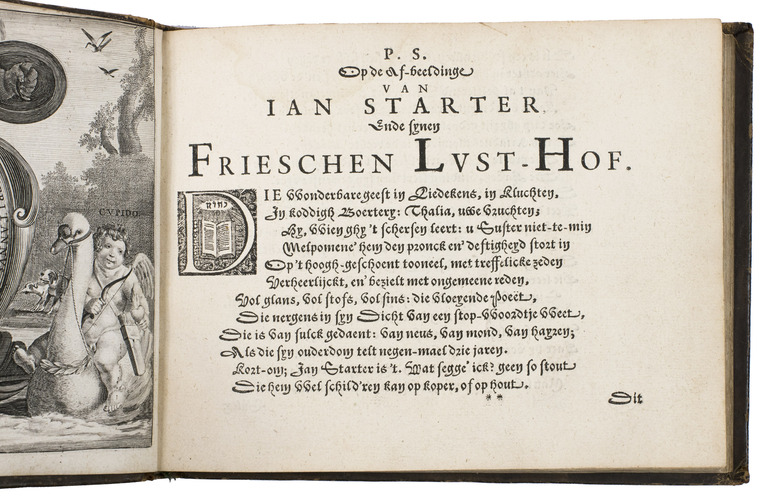 CVPIDO
P. S.
Op de Af-beeldinge
VAN
IAN STARTER.
Ende synen
FRIESCHEN LVST-HOF.
DIE VVonderbare geest in Liedekens, in Kluchten,
In koddigh Boertery: Thalia, uwe vruchten;
By, VVien ghy 't schersen leert: u Suster niet-te-min
Melpomene' hem den pronck en' destigheyd stort in
Op 't hoogh-geschoent tooneel, met treffelicke zeden
Verheerlijckt, en' bezielt met ongemeene reden,
Vol glans, vol stofs, vol sins: die vloeyende Poeët,
Die nergens in syn Dicht van een stop-vvoordtje vveet,
Die is van sulck gedaent: van neus, van mond, van hayren;
Als die syn ouderdom telt negen-mael drie jaren.
Kort-om; Jan Starter is 't. Wat segge' ick? geen so stout
Die hem VVel schild'ren kan op koper, of op hout.
Dit